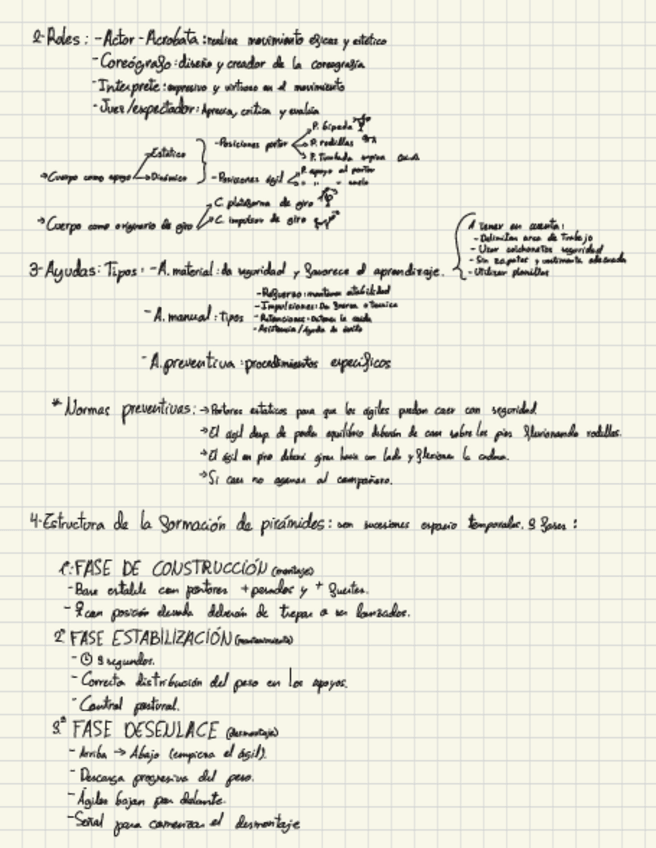 2-Roles: -Actor-Acróbata: realiza movimiento eficaz y estético
-Coreógrafo: diseño y creador de la coreografía
-Interprete: expresivo y virtuoso en el movimiento
-Juez/espectador: Aprecia, critica y evalúa
→Cuerpo como apoyo
Estático
Dinámico
-Posiciones portor
P. bípeda
P. rodillas
P. Tumbada supina
-Posiciones ágil
P. apoyo al portor
" " suelo
→Cuerpo como originario de giro
C. plataforma de giro
C. impulsor de giro
A tener en cuenta:
-Delimitar area de Trabajo
-Usar colchonetas seguridad
-Sin zapatos y vestimenta adecuada
-Utilizar planillas
3-Ayudas: Tipos: -A. material: da seguridad y favorece el aprendizaje.
-A. manual: tipos
-Refuerzo: mantener estabilidad
-Impulsiones: Da fuerza o tecnica
-Retenciones: Detener la caida
-Asistencia/Ayuda de éxito
-A. preventiva: procedimientos específicos
* Normas preventivas: →Portores estaticos para que los ágiles puedan caer con seguridad
→El ágil desp. de perder equilibrio deberán de caer sobre los pies flexionando rodillas.
→El ágil en giro deberá girar hacia un lado y flexionar la cadera.
→Si caes no agarrar al compañero.
4-Estructura de la formación de pirámides: son sucesiones espacio temporales. 3 fases:
1ª: FASE DE CONSTRUCCIÓN (montaje)
-Base estable con portores + pesados y + fuertes.
-con posición elevada deberán de trepar o ser lanzados.
2ª FASE ESTABILIZACIÓN (mantenimiento)
-3 segundos.
-Correcta distribución del peso en los apoyos.
-Control postural.
3ª FASE DESENLACE (desmontaje)
-Arriba → Abajo (empieza el ágil).
-Descarga progresiva del peso.
-Ágiles bajan por delante.
-Señal para comenzar el desmontaje